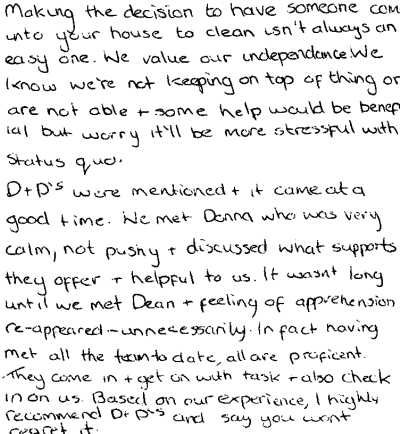 Making the decision to have someone com
into your house to clean isn't always an
easy one. We value our independence We
know we're not keeping on top of thing or
are not able + some help would be benef
ial but worry it'll be more stressful with
status quo.
D+D's were mentioned + it came at a
good time. We met Donna who was very
calm, not pushy + discussed what supports
they offer + helpful to us. It wasnt long
until we met Dean + feeling of apprehension
re-appeared - unnecessarily. In fact having
met all the team to date, all are proficent.
They come in + get on with task + also check
in on us. Based on our experience, I highly
recommend D+D's and say you wont
regret it.